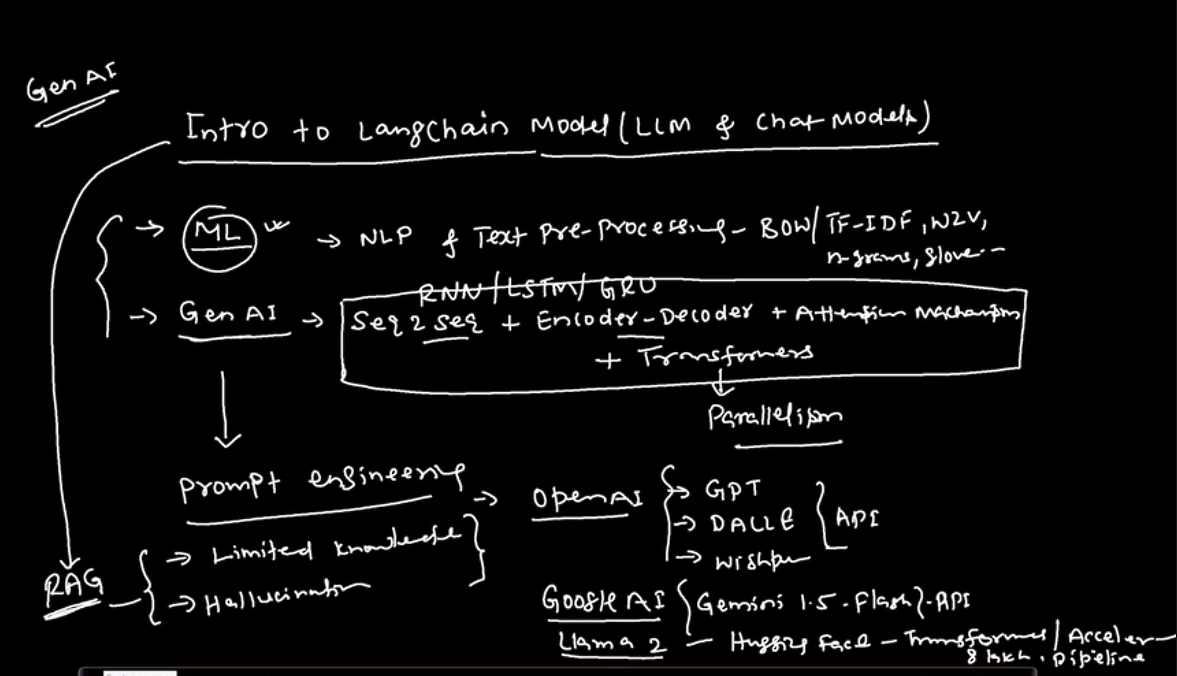 Gen AI
Intro to LangChain Model (LLM & Chat Models)
→ ML → NLP & Text Pre-Processing - BOW/TF-IDF, W2V,
n-grams, glove...
RNN/LSTM/GRU
→ Gen AI → Seq 2 Seq + Encoder-Decoder + Attention Mechanism
+ Transformers
Parallelism
Prompt engineering → OpenAI → GPT
→ DALLE
API
→ wishper
→ Limited knowledge
→ Hallucination
RAG
Google AI Gemini 1.5-Flash - API
Llama 2 - Hugging Face - Transformers / Acceler-
pipeline